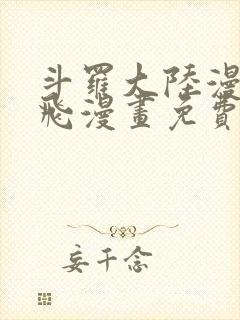 斗羅大陸漫
飛漫畫免費
妄千念